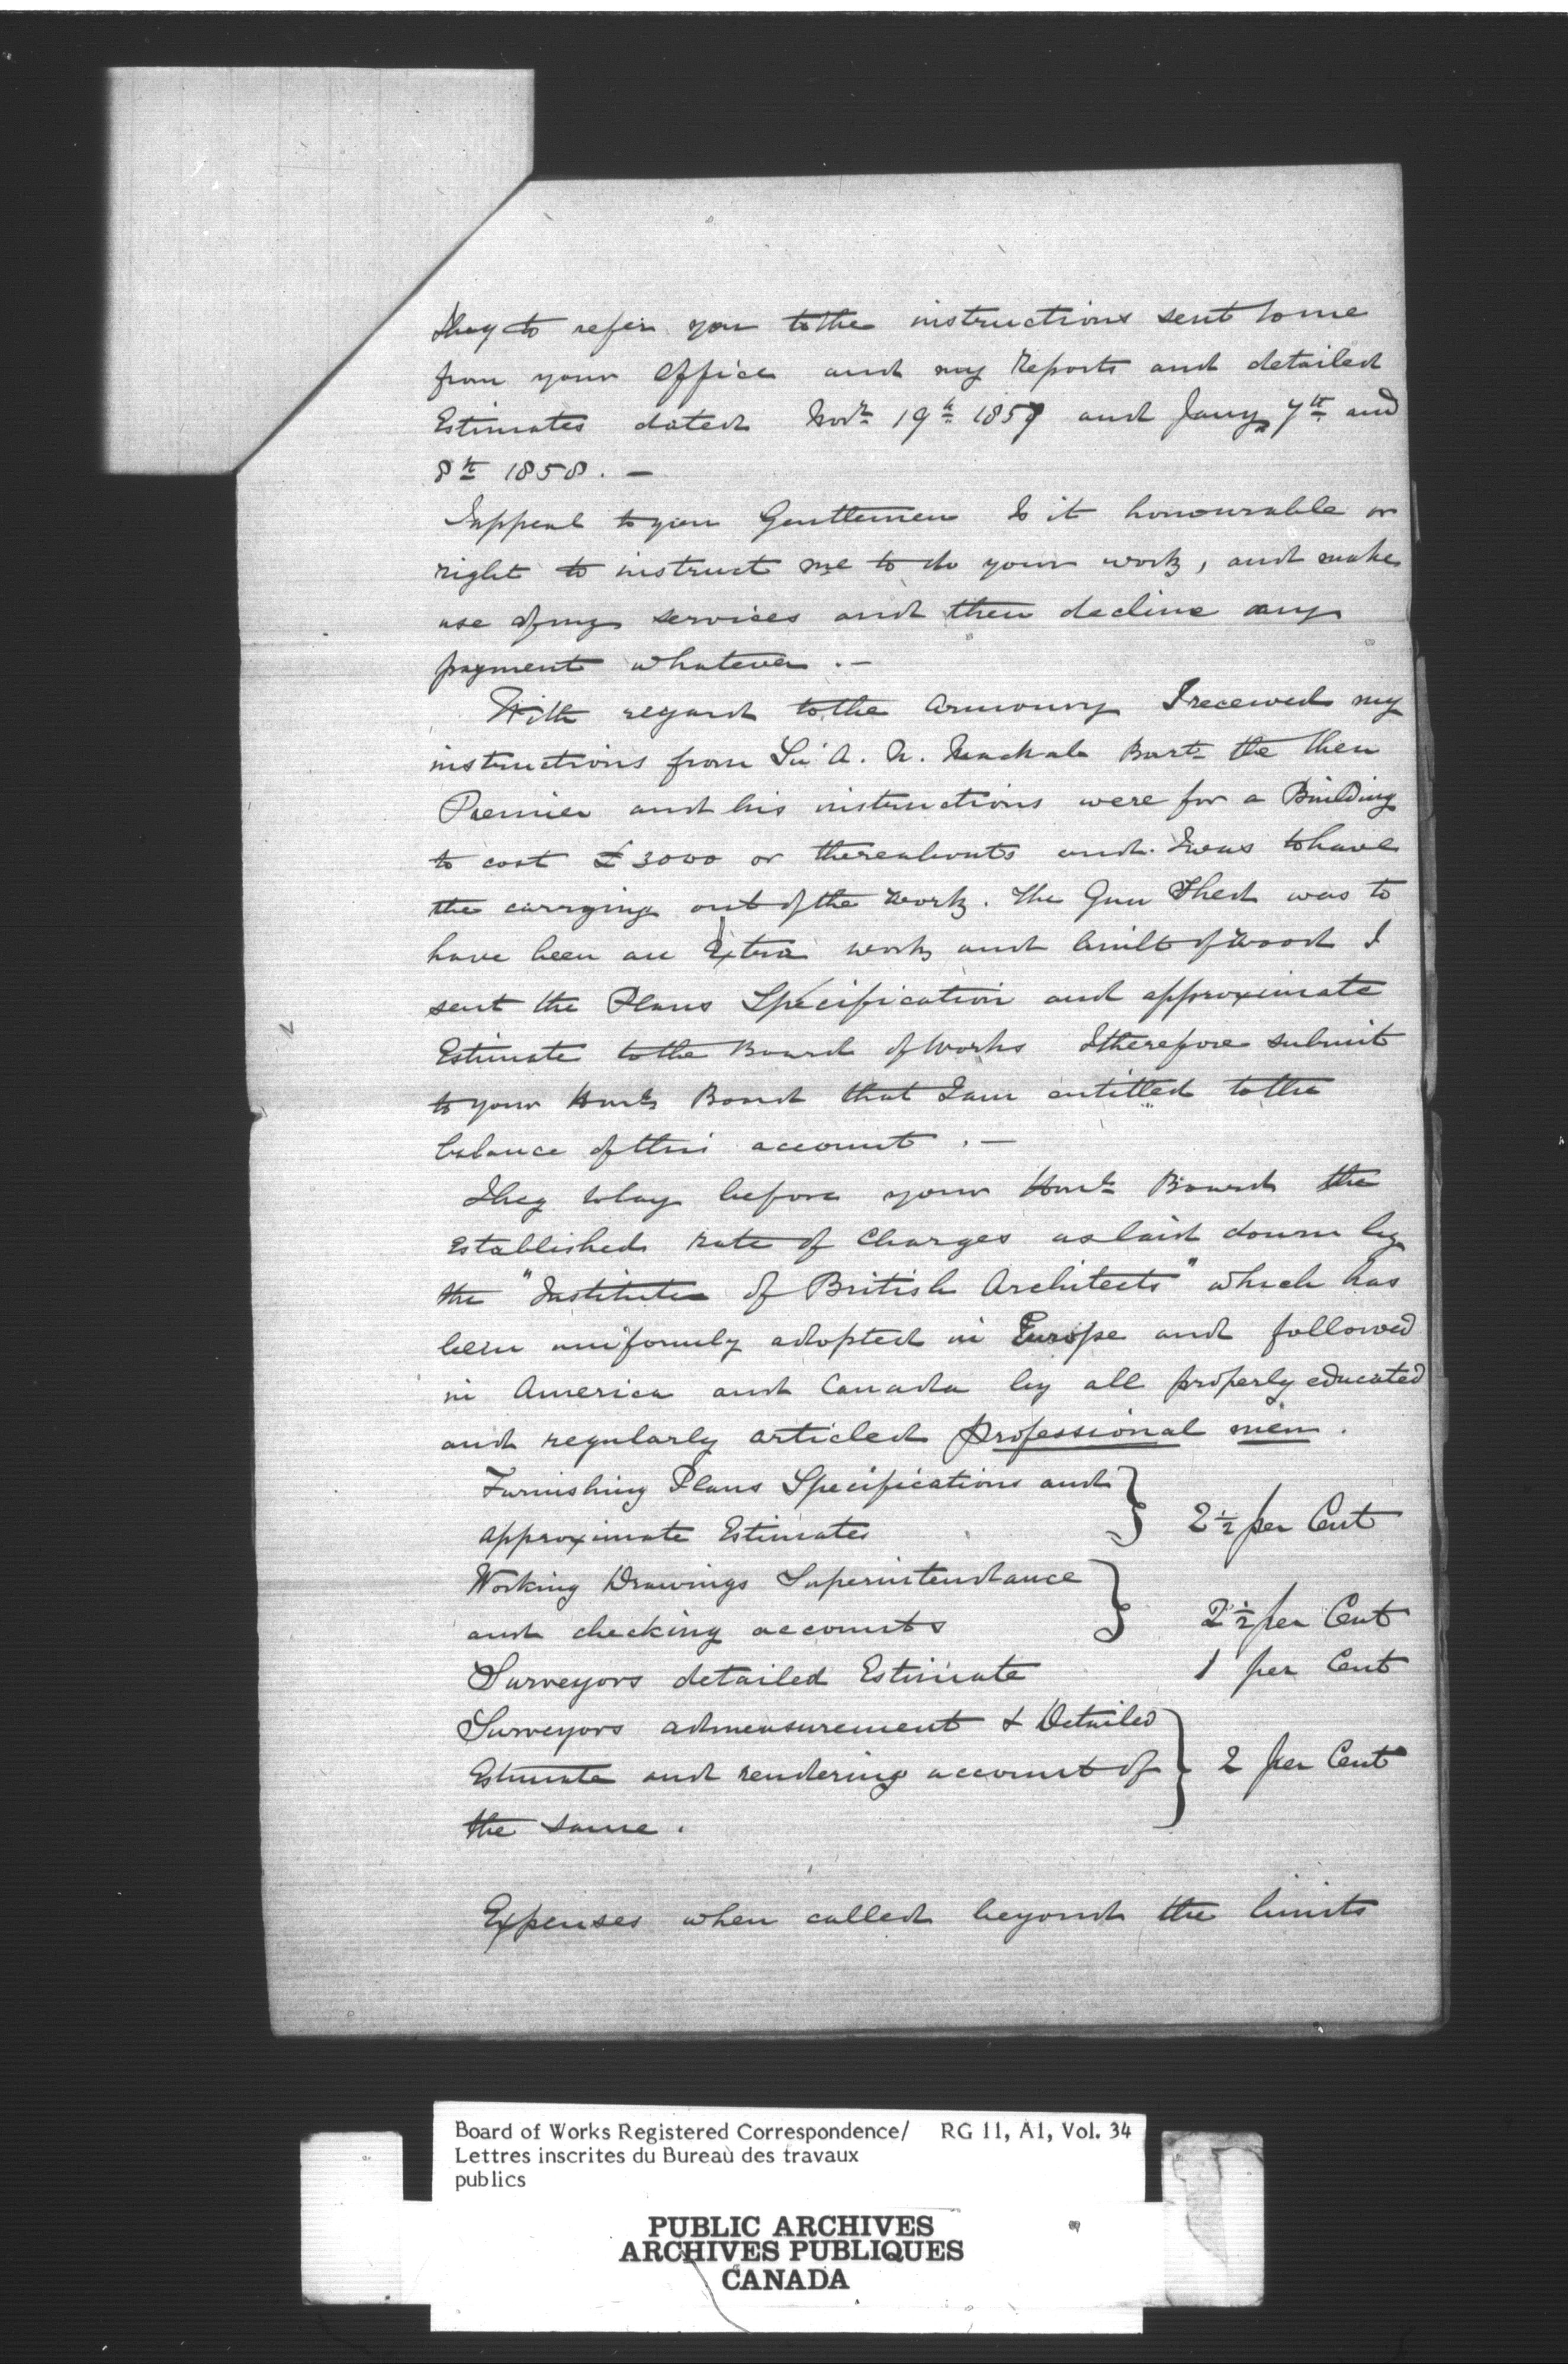 I beg to refer you to the instructions sent to me
from your Office and my Reports and detailed
Estimates dated Novr 19th 1857 and Jany 7th and
8th 1858. —
I appeal to you Gentlemen Is it honourable or
right to instruct me to do your work, and make
use of my services and then decline any
payment whatever . —
With regard to the Armoury I received my
instructions from Sir A. N. MacNab Bart the then
Premier and his instructions were for a Building
to cost £3000 or thereabouts and I was to have
the carrying out of the work. The Gun Shed was to
have been an Extra work and built of Wood I
sent the Plans Specification and approximate
Estimate to the Board of Works I therefore submit
to your Honble Board that I am entitled to the
balance of this account . —
I beg to lay before your Honble Board the
Established rate of Charges as laid down by
the "Institute of British Architects" which has
been uniformly adopted in Europe and followed
in America and Canada by all properly educated
and regularly articled professional men .
Furnishing Plans Specifications and
approximate Estimates } 2½ per Cent
Working Drawings Superintendance
and checking accounts } 2½ per Cent
Surveyors detailed Estimate 1 per Cent
Surveyors admeasurement & Detailed
Estimate and rendering account of } 2 per Cent
the same .
Expenses when called beyond the limits
Board of Works Registered Correspondence/ RG 11, A1, Vol. 34
Lettres inscrites du Bureau des travaux
publics
PUBLIC ARCHIVES
ARCHIVES PUBLIQUES
CANADA